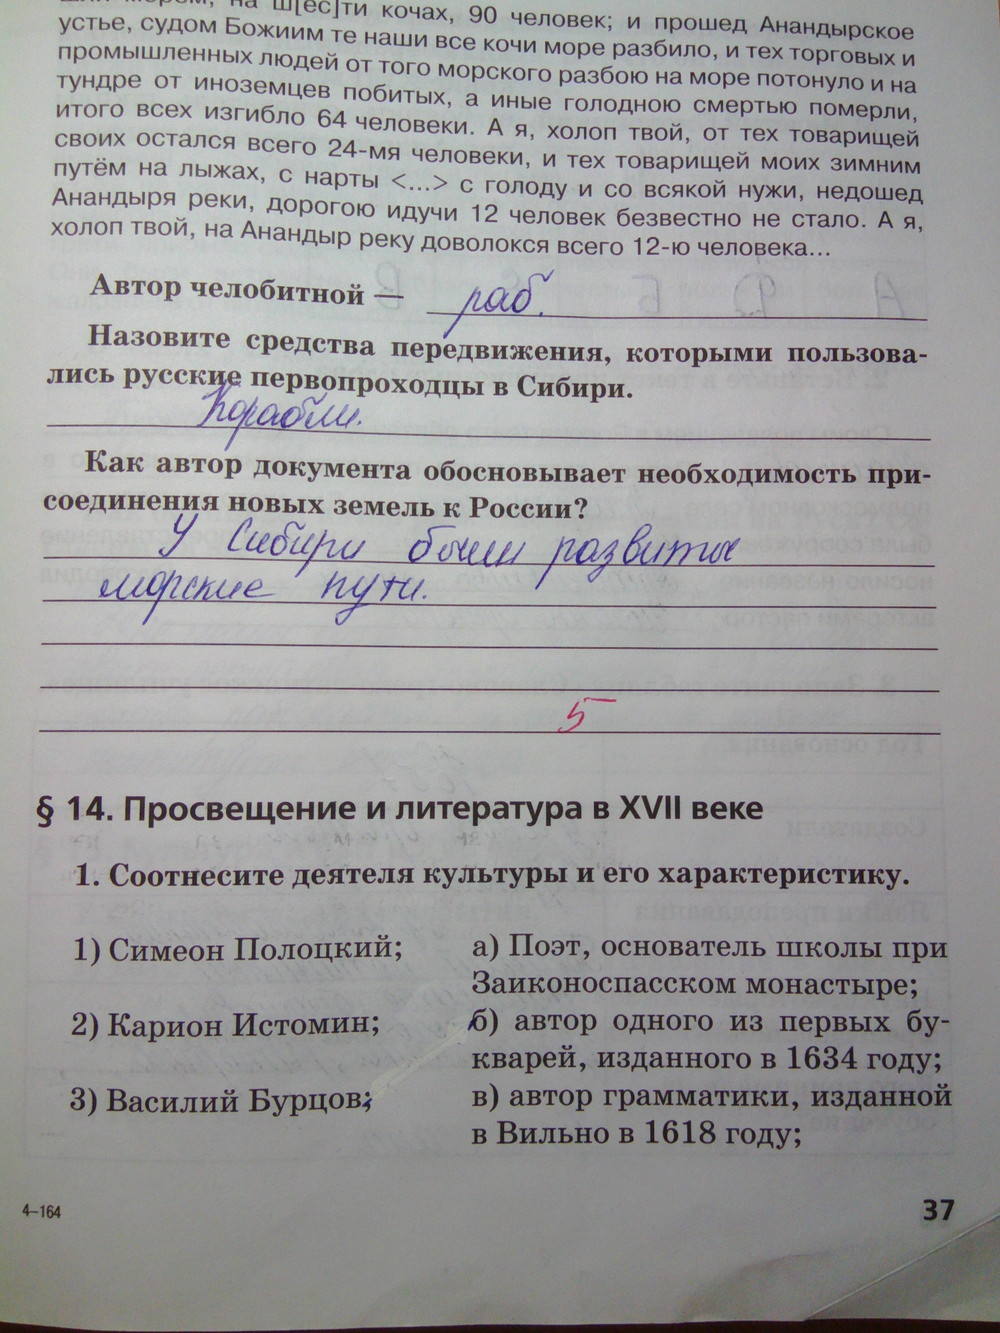 кочах, 90 человек; и прошед Анандырское
устье, судом Божиим те наши все кочи море разбило, и тех торговых и
промышленных людей от того морского разбою на море потонуло и на
тундре от иноземцев побитых, а иные голодною смертью померли,
итого всех изгибло 64 человеки. А я, холоп твой, от тех товарищей
своих остался всего 24-мя человеки, и тех товарищей моих зимним
путём на лыжах, с нарты <...> с голоду и со всякой нужи, недошед
Анандыря реки, дорогою идучи 12 человек безвестно не стало. А я,
холоп твой, на Анандыр реку доволокся всего 12-ю человека...
Автор челобитной — раб.
Назовите средства передвижения, которыми пользова-
лись русские первопроходцы в Сибири.
Корабли.
Как автор документа обосновывает необходимость при-
соединения новых земель к России?
У Сибири были развиты
морские пути.
5
§ 14. Просвещение и литература в XVII веке
1. Соотнесите деятеля культуры и его характеристику.
1) Симеон Полоцкий;
2) Карион Истомин;
3) Василий Бурцов;
а) Поэт, основатель школы при
Заиконоспасском монастыре;
б) автор одного из первых бу-
кварей, изданного в 1634 году;
в) автор грамматики, изданной
в Вильно в 1618 году;
4–164
37